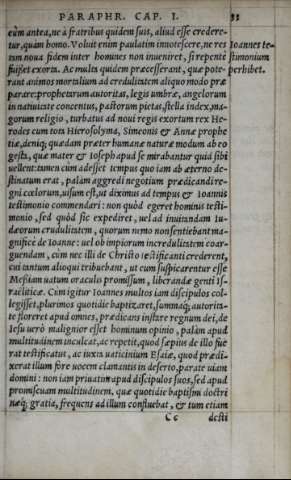 PARAPHR. CAP. I. 33
eũm antea, ne à fratribus quidem suis, aliud esse credere-
tur, quàm homo. Voluit enim paulatim innotescere, ne res
tam noua fidem inter homines non inueniret, si repentè
fuisset exorta. Ac multa quidem præcesserant, quæ pote-
rant animos mortalium ad credulitatem aliquo modo præ
parare: prophetarum autoritas, legis umbræ, angelorum
in natiuitate concentus, pastorum pietas, stella index, ma-
gorum religio, turbatus ad noui regis exortum rex He-
rodes cum tota Hierosolyma, Simeonis & Annæ prophe
tiæ, deniq; quædam præter humanæ naturæ modum ab eo
gesta, quæ mater & Ioseph apud se mirabantur quid sibi
uellent: tamen cùm adesset tempus quo iam ab æterno de-
stinatum erat, palàm aggredi negotium prædicandi re-
gni cælorum, usum est, ut diximus ad tempus & Ioannis
testimonio commendari: non quòd egeret hominis testi-
monio, sed quòd sic expediret, uel ad inuitandam Iu-
dæorum crudulitatem, quorum nemo non sentiebant ma-
gnificè de Ioanne: uel ob impiorum incredulitatem coar-
guendam, cùm nec illi de Christo testificanti crederent,
cui tantum alioqui tribuebant, ut eum suspicarentur esse
Messiam uatum oraculis promissum, liberandæ genti Is-
raëliticæ. Cùm igitur Ioannes multos iam discipulos col-
legisset, plurimos quotidie baptizaret, summaq; autorita-
te floreret apud omnes, prædicans instare regnum dei, de
Iesu uerò malignior esset hominum opinio, palàm apud
multitudinem inculcat, ac repetit, quod sæpius de illo fue
rat testificatus, ac iuxta uaticinium Esaiæ, quod prædi-
xerat illum fore uocem clamantis in deserto, parate uiam
domini: non iam priuatim apud discipulos suos, sed apud
promiscuam multitudinem, quæ quotidie baptismi doctri
næq; gratia, frequens ad illum confluebat, & tum etiam
Cc desti
Ioannes te-
stimonium
perhibet.